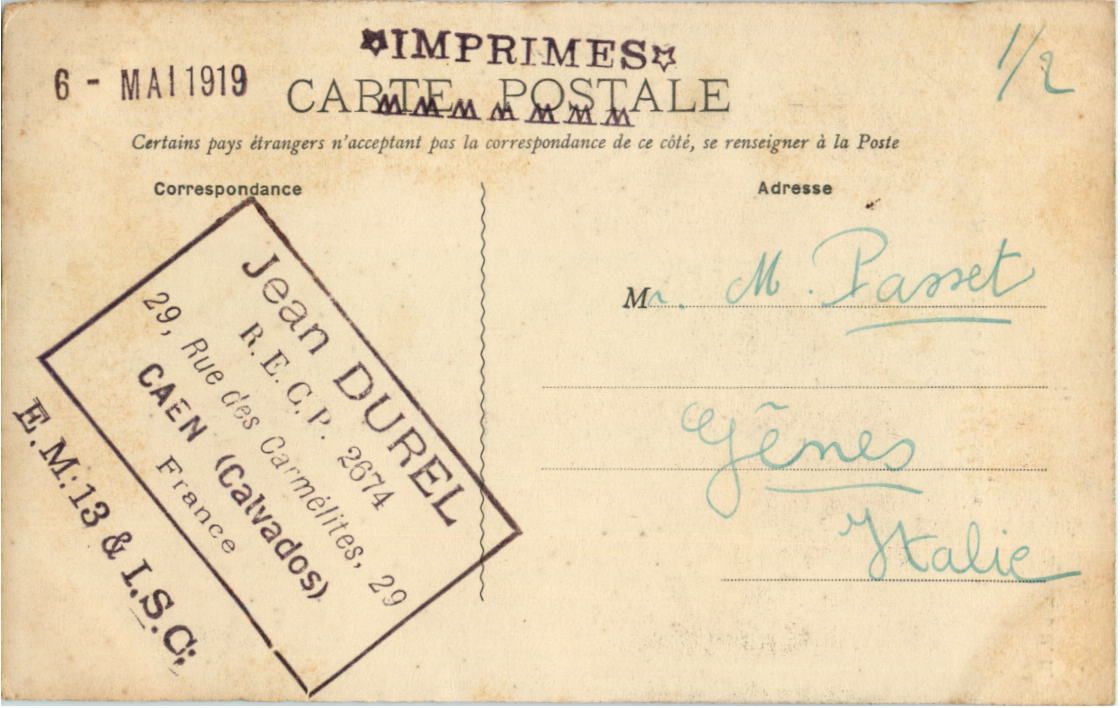 ☆IMPRIMES☆
6 - MAI 1919
1/2
CARTE POSTALE
Certains pays étrangers n'acceptant pas la correspondance de ce côté, se renseigner à la Poste
Correspondance
Adresse
Jean DUREL
R. E. C. P. 2674
29, Rue des Carmélites, 29
CAEN (Calvados)
France
E. M: 13 & I.S.C:
Mr. M. Passet
Gênes
Italie